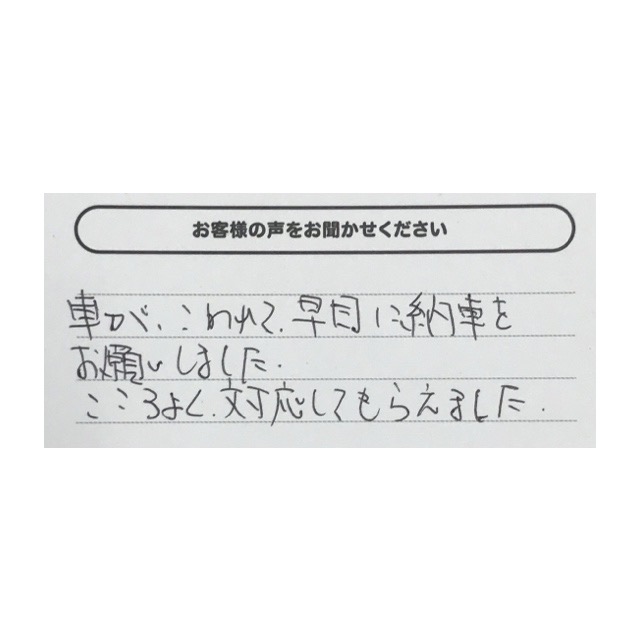 お客様の声をお聞かせください
車が、こわれて、早目に納車を
お願いしました.
こころよく、対応してもらえました.